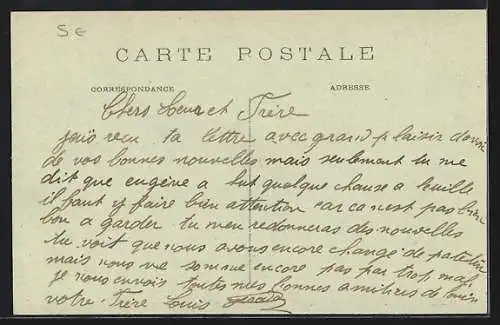 5 €
CARTE POSTALE
CORRESPONDANCE
ADRESSE
Chers Seur et Frère
jais recu ta lettre avec grand plaisir davoir
de vos bonnes nouvelles mais seulement tu me
dit que eugène a but quelque chause a
il faut y faire bien attention car ca nest pas bien
bon a garder tu men redonneras des nouvelles
tu voit que nous avons encore changé de
mais nous ne somme encore pas par trop mal
je nous envois toutes mes bonnes amitires de
votre Frère Louis